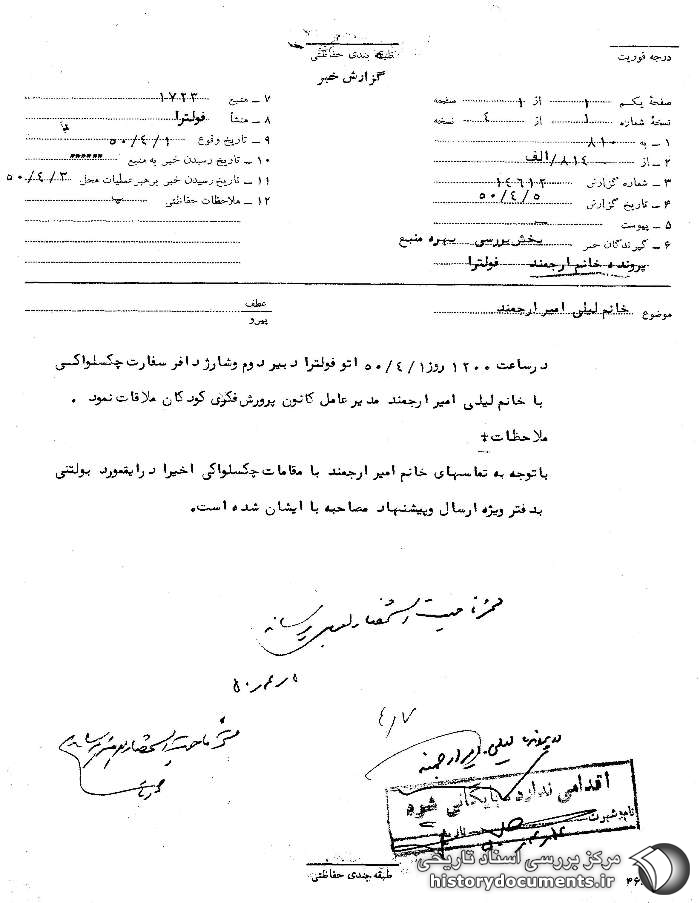 طبقه بندی حفاظتی
درجه فوریت
گزارش خبر
صفحهٔ یکم ۱ از ۱ صفحه
نسخهٔ شماره ۱ از ٤ نسخه
۱ ـ به ۸۱۰
۲ ـ از ۸۱٤/الف
۳ ـ شماره گزارش ۱٤٦۱۲
٤ ـ تاریخ گزارش ۵۰/٤/۵
۵ ـ پیوست
٦ ـ گیرندگان خبر بخش بررسی بهره منبع
پرونده خانم ارجمند فولترا
۷ ـ منبع ۱۷۲۳
۸ ـ منشأ فولترا
۹ ـ تاریخ وقوع ۵۰/٤/۱
۱۰ ـ تاریخ رسیدن خبر به منبع
۱۱ ـ تاریخ رسیدن خبر برهبر عملیات محل ۵۰/٤/۳
۱۲ ـ ملاحظات حفاظتی
موضوع خانم لیلی امیر ارجمند
عطف
پیرو
درساعت ۱۲۰۰ روز ۵۰/٤/۱ اتو فولترا دبیر دوم وشارژ دافر سفارت چکسلواکسی
با خانم لیلی امیر ارجمند مدیرعامل کانون پرورش فکری کودکان ملاقات نمود .
ملاحظات:
باتوجه به تماسهای خانم امیر ارجمند با مقامات چکسلواکی اخیرا دراینمورد بولتنی
بدفتر ویژه ارسال وپیشنهاد مصاحبه با ایشان شده است.
٤/۷
لیلی امیر ارجمند
اقدامی ندارد بایگانی شود
طبقه بندی حفاظتی
مرکز بررسی اسناد تاریخی
historydocuments.ir